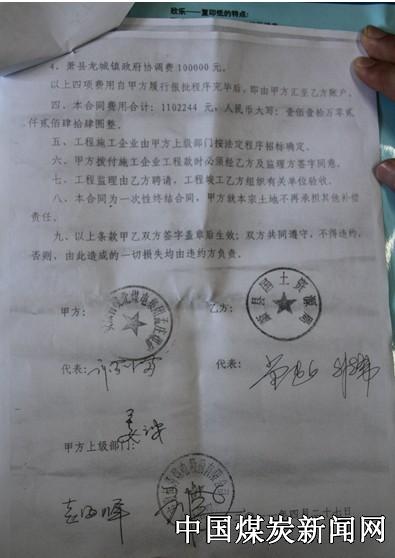 欧乐——复印纸的特点:
4、萧县龙城镇政府协调费100000元。
以上四项费用自甲方履行报批程序完毕后，即由甲方汇至乙方账户。
四、本合同费用合计：1102244元，人民币大写：壹佰壹拾万零贰
仟贰佰肆拾肆圆整。
五、工程施工企业由甲方上级部门按法定程序招标确定。
六、甲方拨付施工企业工程款时必须经乙方及监理方签字同意。
七、工程监理由乙方聘请，工程竣工乙方组织有关单位验收。
八、本合同为一次性终结合同，甲方就本宗土地不再承担其他补偿
责任。
九、以上条款甲乙双方签字盖章后生效；双方共同遵守，不得违约，
否则，由此造成的一切损失均由违约方负责。
甲方：
乙方：
萧县国土资源局
代表：
代表：
甲方上级部门：
年四月二十七日
中国煤炭新闻网